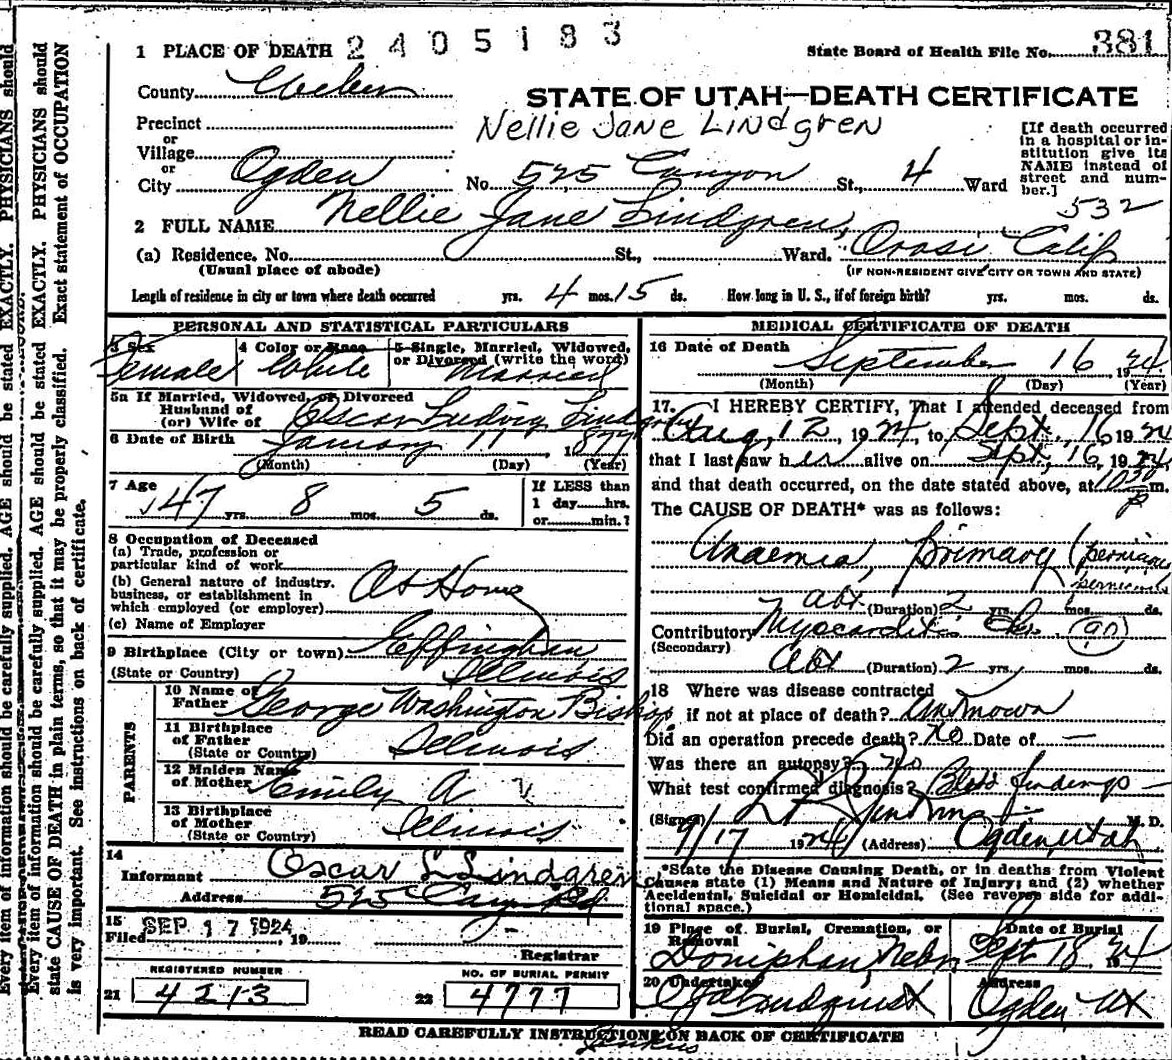 2405183
1 PLACE OF DEATH
State Board of Health File No. 381
County Weber
STATE OF UTAH—DEATH CERTIFICATE
Precinct
Nellie Jane Lindgren
or
Village
or
City Ogden No. 525 Canyon St., 4 Ward
[If death occurred
in a hospital or in-
stitution give its
NAME instead of
street and num-
ber.]
532
2 FULL NAME Nellie Jane Lindgren,
(a) Residence. No. St., Ward. Orosi, Calif
(Usual place of abode) (IF NON-RESIDENT GIVE CITY OR TOWN AND STATE)
Length of residence in city or town where death occurred yrs. 4 mos. 15 ds. How long in U. S., if of foreign birth? yrs. mos. ds.
PERSONAL AND STATISTICAL PARTICULARS
3 Sex Female
4 Color or Race White
5 Single, Married, Widowed,
or Divorced (write the word)
Married
5a If Married, Widowed, or Divorced
Husband of
(or) Wife of Oscar Ludvig Lindgren
6 Date of Birth January 11 1877
(Month) (Day) (Year)
7 Age 47 yrs. 8 mos. 5 ds.
If LESS than
1 day hrs.
or min.?
8 Occupation of Deceased
(a) Trade, profession or
particular kind of work
(b) General nature of industry,
business, or establishment in
which employed (or employer)
At Home
(c) Name of Employer
9 Birthplace (City or town) Effingham
(State or Country) Illinois
PARENTS
10 Name of
Father George Washington Bishop
11 Birthplace
of Father
(State or Country) Illinois
12 Maiden Name
of Mother Emily A
13 Birthplace
of Mother
(State or Country) Illinois
14
Informant Oscar L Lindgren
Address 525 Canyon Rd
15
Filed SEP 17 1924, 19
Registrar
REGISTERED NUMBER
21 4213
NO. OF BURIAL PERMIT
22 4777
MEDICAL CERTIFICATE OF DEATH
16 Date of Death September 16 1924
(Month) (Day) (Year)
17. I HEREBY CERTIFY, That I attended deceased from
Aug, 12 1924, to Sept. 16 1924
that I last saw her alive on Sept, 16, 1924
and that death occurred, on the date stated above, at 10 30 P m.
The CAUSE OF DEATH* was as follows:
Anaemia, primary (pernicious
pernicious
abt (Duration) 2 yrs. mos. ds.
Contributory Myocarditis Chr. (90)
(Secondary)
Abt (Duration) 2 yrs. mos. ds.
18 Where was disease contracted
if not at place of death? Unknown
Did an operation precede death? No Date of —
Was there an autopsy? No
What test confirmed diagnosis? Blood findings —
(Signed) M. D.
9/17 1924 (Address) Ogden, Utah
*State the Disease Causing Death, or in deaths from Violent
Causes state (1) Means and Nature of Injury; and (2) whether
Accidental, Suicidal or Homicidal. (See reverse side for addi-
tional space.)
19 Place of Burial, Cremation, or
Removal
Doniphan, Nebr
Date of Burial
Sept 18 1924
20 Undertaker
Lindquist
Address
Ogden Ut
READ CAREFULLY INSTRUCTIONS ON BACK OF CERTIFICATE
Every item of information should be carefully supplied. AGE should be stated EXACTLY. PHYSICIANS should
Every item of information should be carefully supplied. AGE should be stated EXACTLY. PHYSICIANS should
state CAUSE OF DEATH in plain terms, so that it may be properly classified. Exact statement of OCCUPATION
is very important. See instructions on back of certificate.